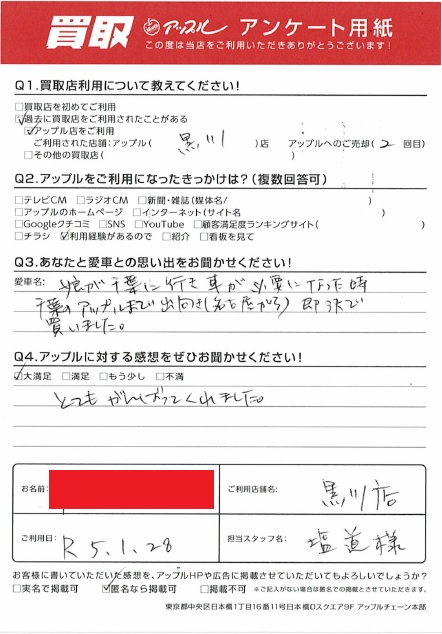 買取 アップル アンケート用紙
この度は当店をご利用いただきありがとうございます!
Q1.買取店利用について教えてください!
□買取店を初めてご利用
☑過去に買取店をご利用されたことがある
☑アップル店をご利用
ご利用された店舗:アップル( 黒川 )店 アップルへのご売却( 2 回目)
□その他の買取店( )
Q2.アップルをご利用になったきっかけは?(複数回答可)
□テレビCM □ラジオCM □新聞・雑誌(媒体名/ )
□アップルのホームページ □インターネット(サイト名 )
□Googleクチコミ □SNS □YouTube □顧客満足度ランキングサイト( )
□チラシ ☑利用経験があるので □紹介 □看板を見て
Q3.あなたと愛車との思い出をお聞かせください!
愛車名: 娘が千葉に行き車が必要になった時
千葉のアップルまで出向き(名古屋から)即決で
買いました。
Q4.アップルに対する感想をぜひお聞かせください!
☑大満足 □満足 □もう少し □不満
とてもがんばってくれました。
お名前:
ご利用店舗名: 黒川店
ご利用日: R5.1.28
担当スタッフ名: 塩道様
お客様に書いていただいた感想を、アップルHPや広告に掲載させていただいてもよろしいでしょうか?
□実名で掲載可 ☑匿名なら掲載可 □掲載不可 ※ご記入がない場合は匿名での掲載とさせていただきます。
東京都中央区日本橋1丁目16番11号日本橋Dスクエア9F アップルチェーン本部